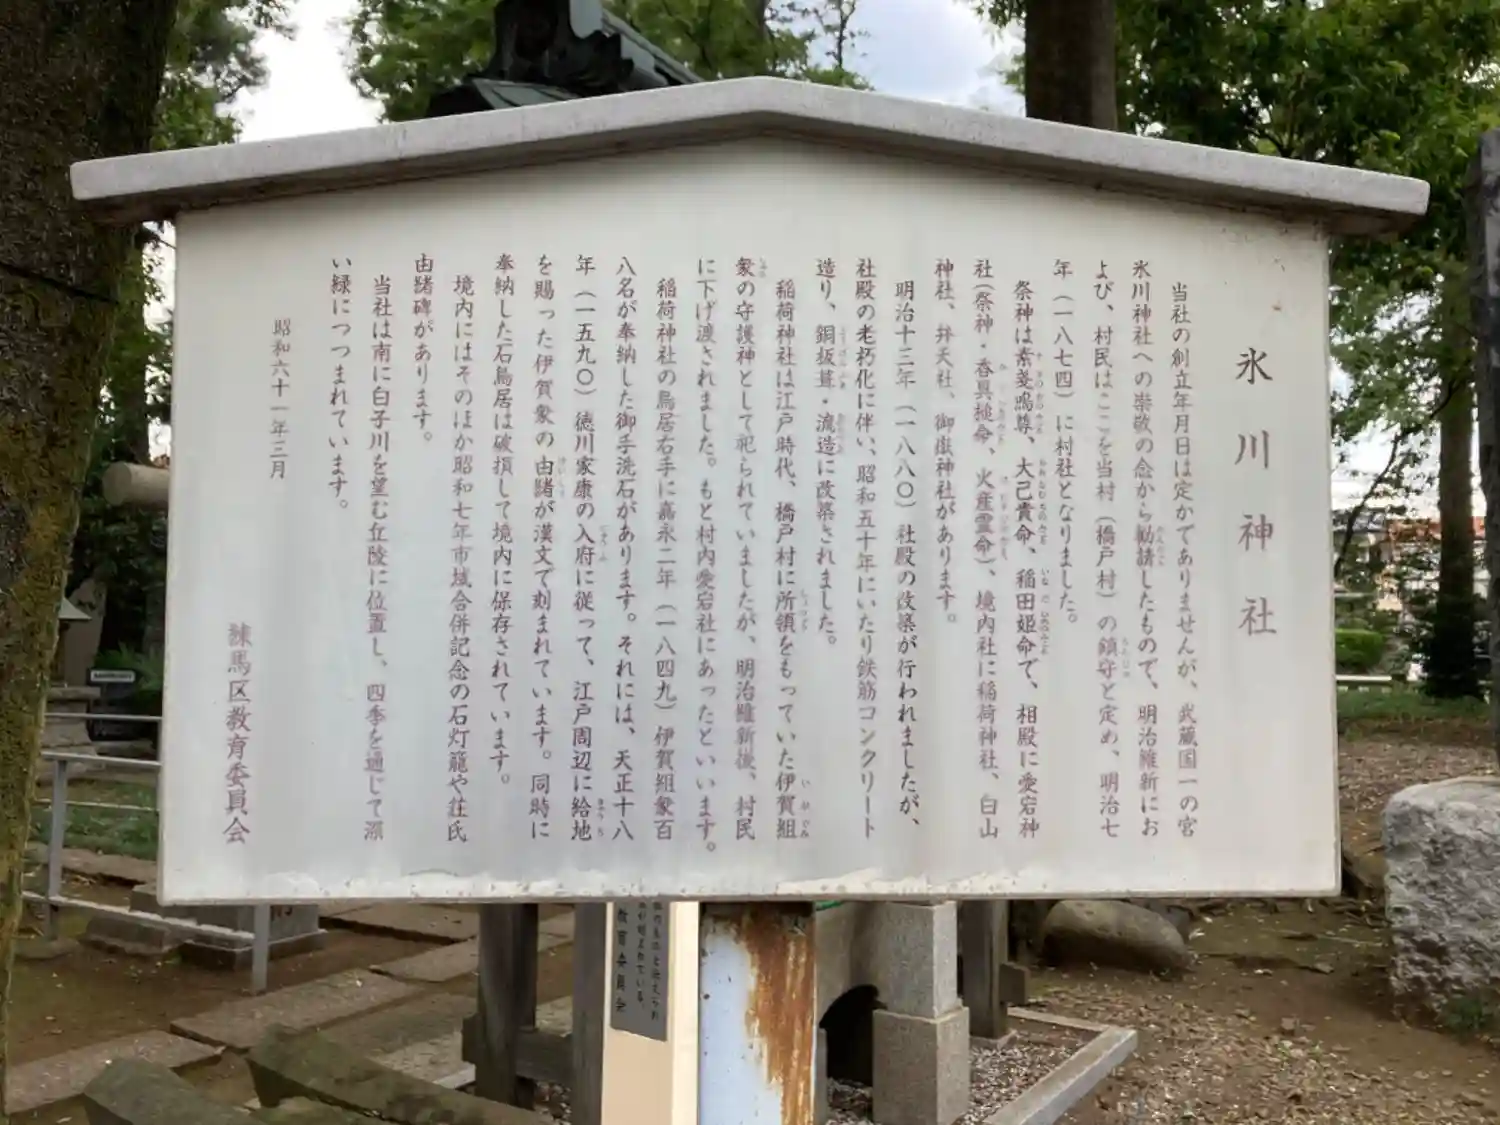 氷川神社
当社の創立年月日は定かでありませんが、武蔵国一の宮
氷川神社への崇敬の念から勧請したもので、明治維新にお
よび、村民はここを当村（橋戸村）の鎮守と定め、明治七
年（一八七四）に村社となりました。
祭神は素戔嗚尊、大己貴命、稲田姫命で、相殿に愛宕神
社（祭神・香具槌命、火産霊命）、境内社に稲荷神社、白山
神社、弁天社、御嶽神社があります。
明治十三年（一八八〇）社殿の改築が行われましたが、
社殿の老朽化に伴い、昭和五十年にいたり鉄筋コンクリート
造り、銅板葺・流造に改築されました。
稲荷神社は江戸時代、橋戸村に所領をもっていた伊賀組
衆の守護神として祀られていましたが、明治維新後、村民
に下げ渡されました。もと村内愛宕社にあったといいます。
稲荷神社の鳥居右手に嘉永二年（一八四九）伊賀組衆百
八名が奉納した御手洗石があります。それには、天正十八
年（一五九〇）徳川家康の入府に従って、江戸周辺に給地
を賜った伊賀衆の由緒が漢文で刻まれています。同時に
奉納した石鳥居は破損して境内に保存されています。
境内にはそのほか昭和七年市域合併記念の石灯籠や荘氏
由緒碑があります。
当社は南に白子川を望む丘陵に位置し、四季を通じて深
い緑につつまれています。
昭和六十一年三月
練馬区教育委員会